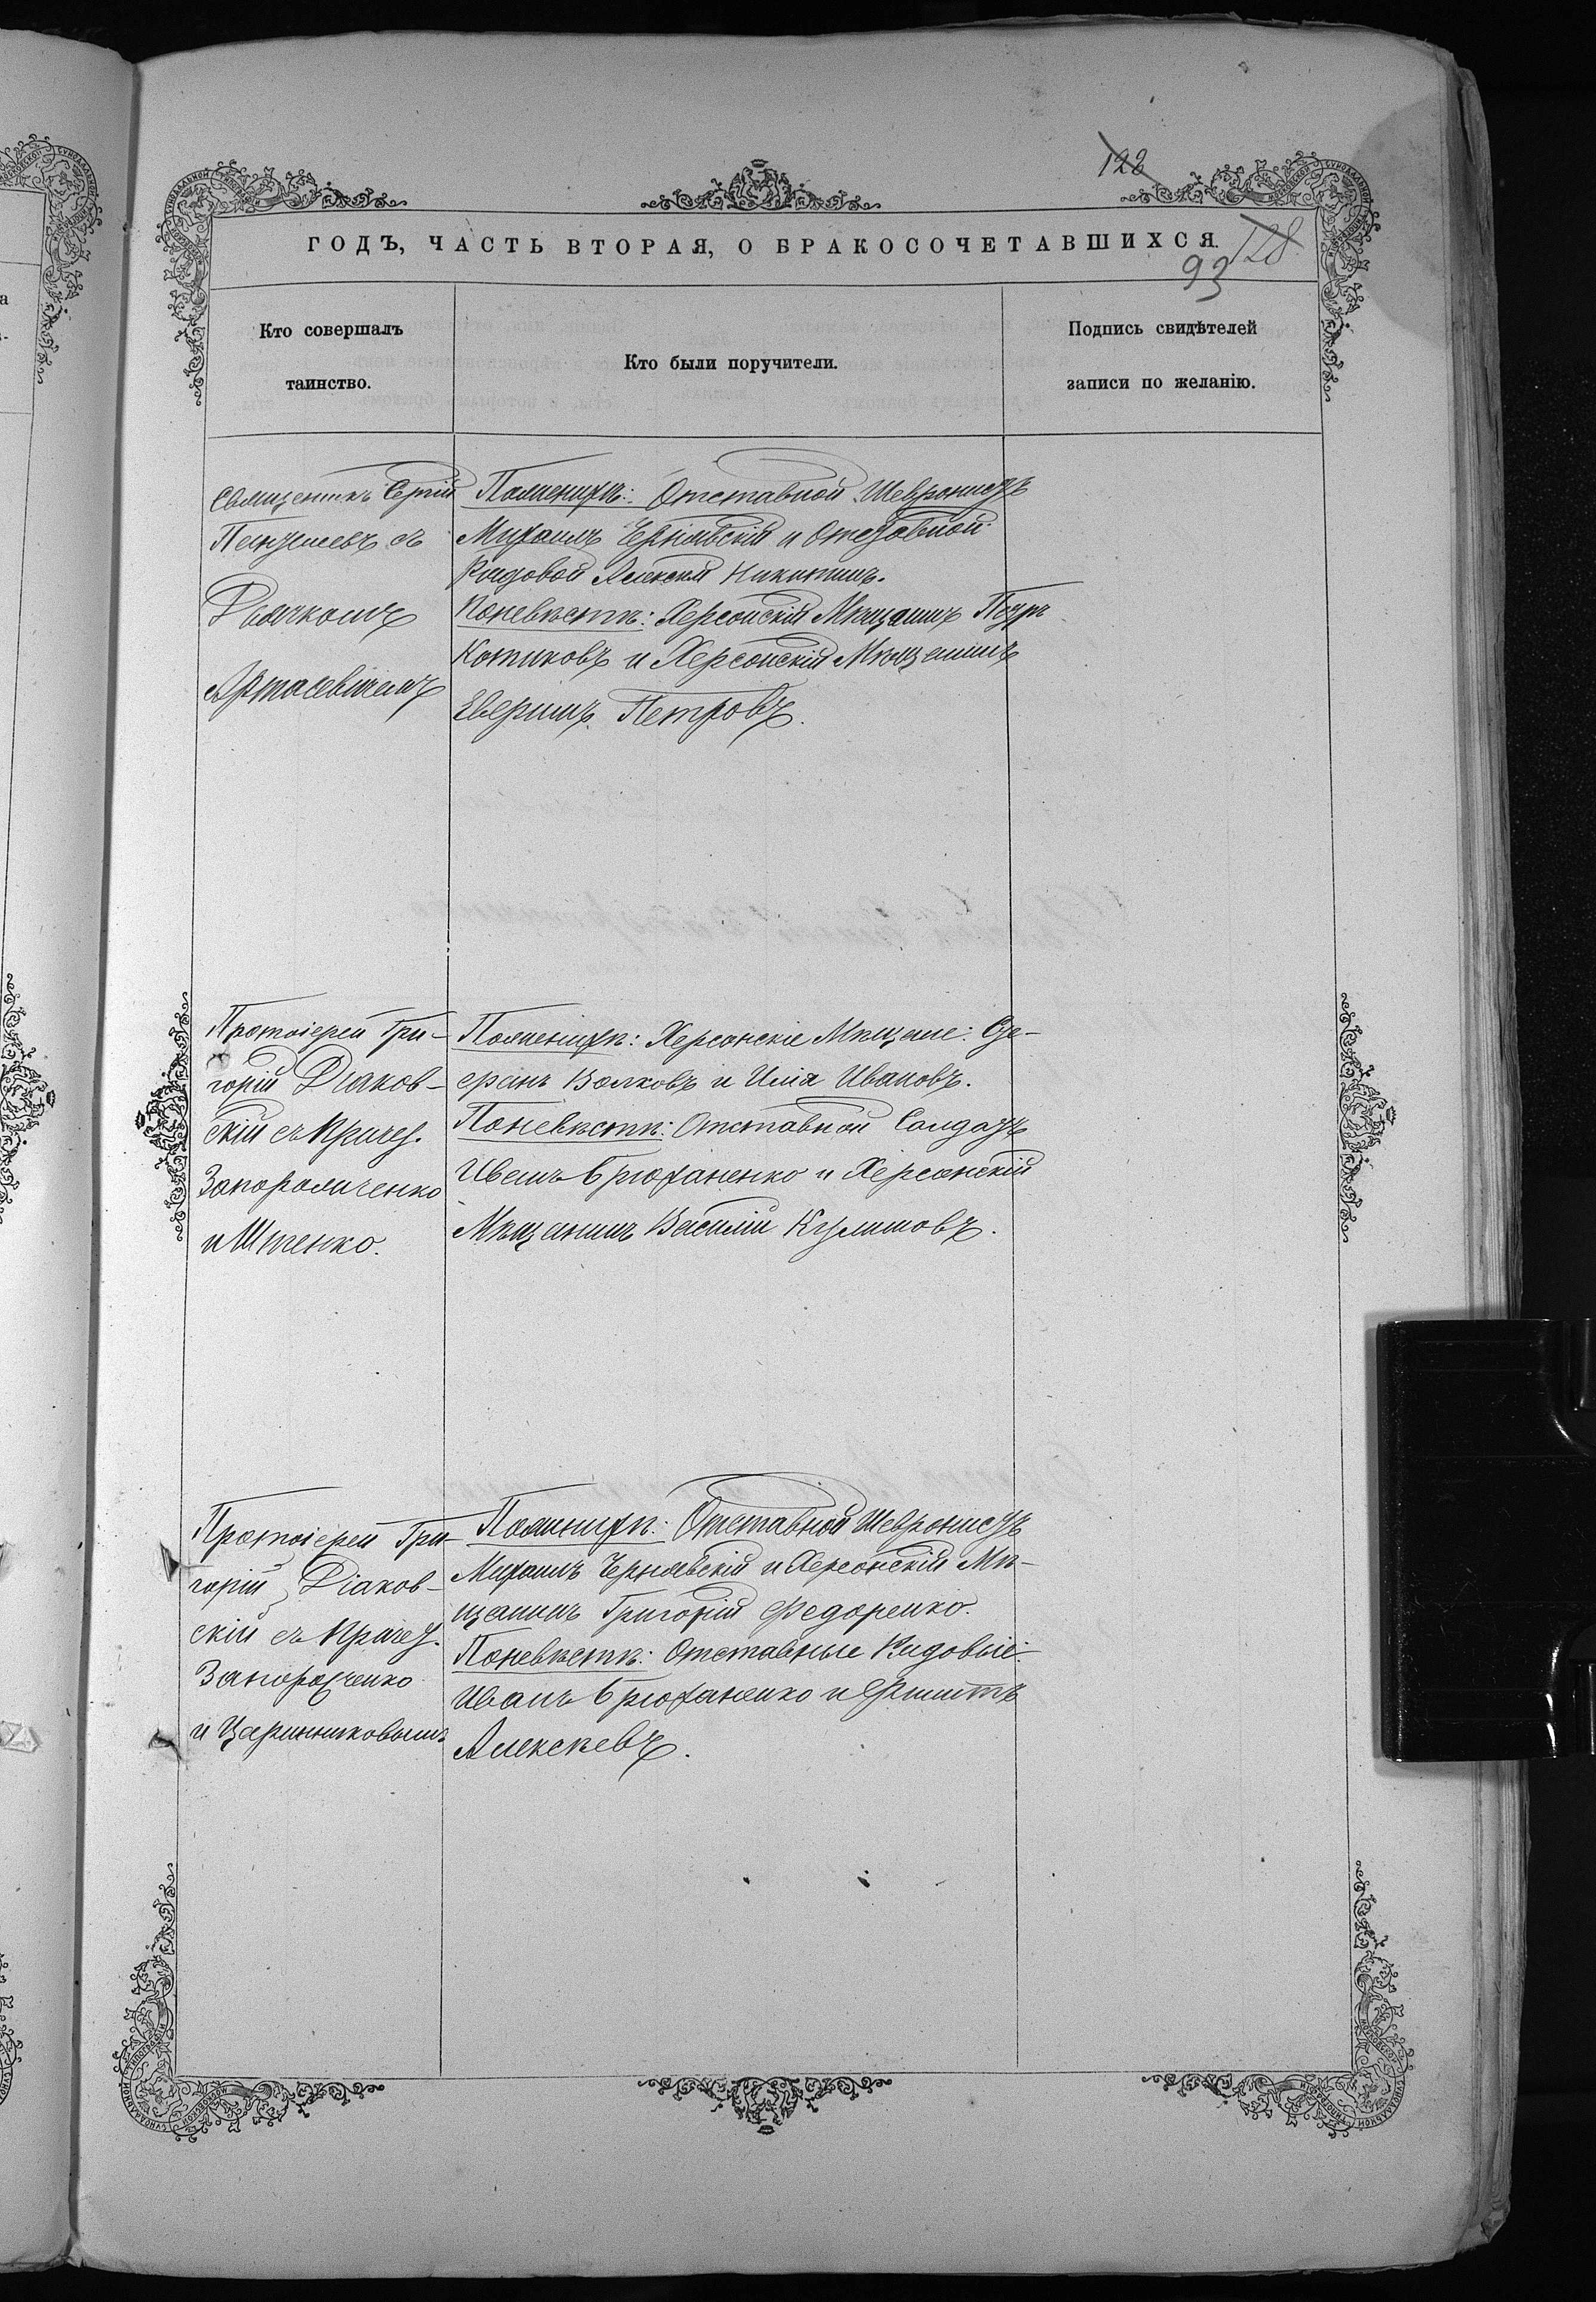 122
ГОДЪ, ЧАСТЬ ВТОРАЯ, О БРАКОСОЧЕТАВШИХСЯ.
128
93
Кто совершалъ
таинство.
Кто были поручители.
Подпись свидѣтелей
записи по желанію.
Священникъ Сергій
съ
Дьячкомъ
Артасевичемъ
Поженихѣ: Отставной Шевронистъ
Михаилъ Чернявскій и Отставной
Рядовой Алексѣй Никитинъ.
Поневѣстѣ: Херсонскій Мѣщанинъ Петръ
Котиковъ и Херсонскій Мѣщанинъ
Петровъ.
Протоіерей Гри-
горій Діаков-
скій съ Причет.
Запорожченко
и
Поженихѣ: Херсонскіе Мѣщане: Сте-
фанъ Волковъ и Илія Ивановъ.
Поневѣстѣ: Отставной Салдатъ
Иванъ Брюханенко и Херсонскій
Мѣщанинъ Василій Куликовъ.
Протоіерей Гри-
горій Діаков-
скій съ Причет.
Запорожченко
и Царинниковымъ
Поженихѣ: Отставной Шевронистъ
Михаилъ Чернявскій и Херсонскій Мѣ-
щанинъ Григорій Федоренко.
Поневѣстѣ: Отставные Рядовые:
Иванъ Брюханенко и Филиппъ
Алексѣевъ.